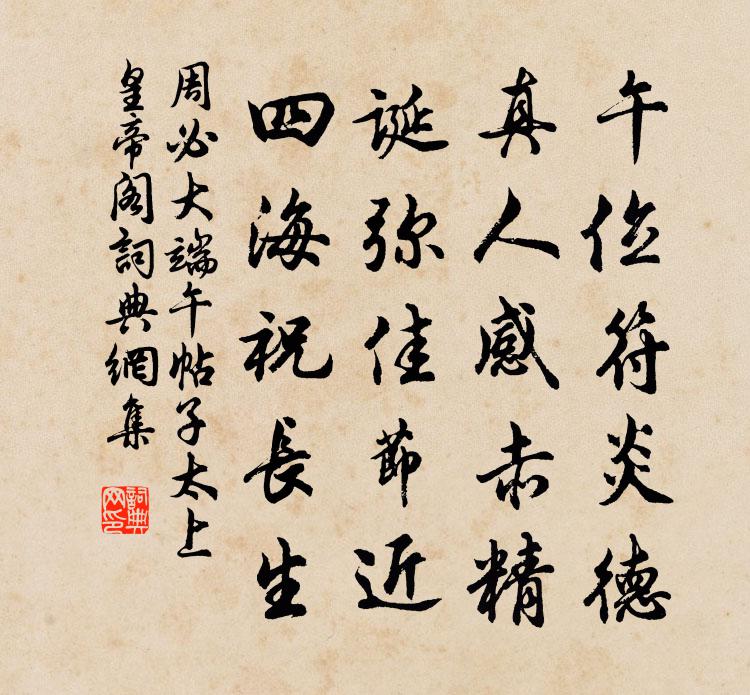 午位符炎德
真人感赤精
誕弥佳節近
四海祝長生
周必大端午帖子太上
皇帝閣詞典網集
詞典网印